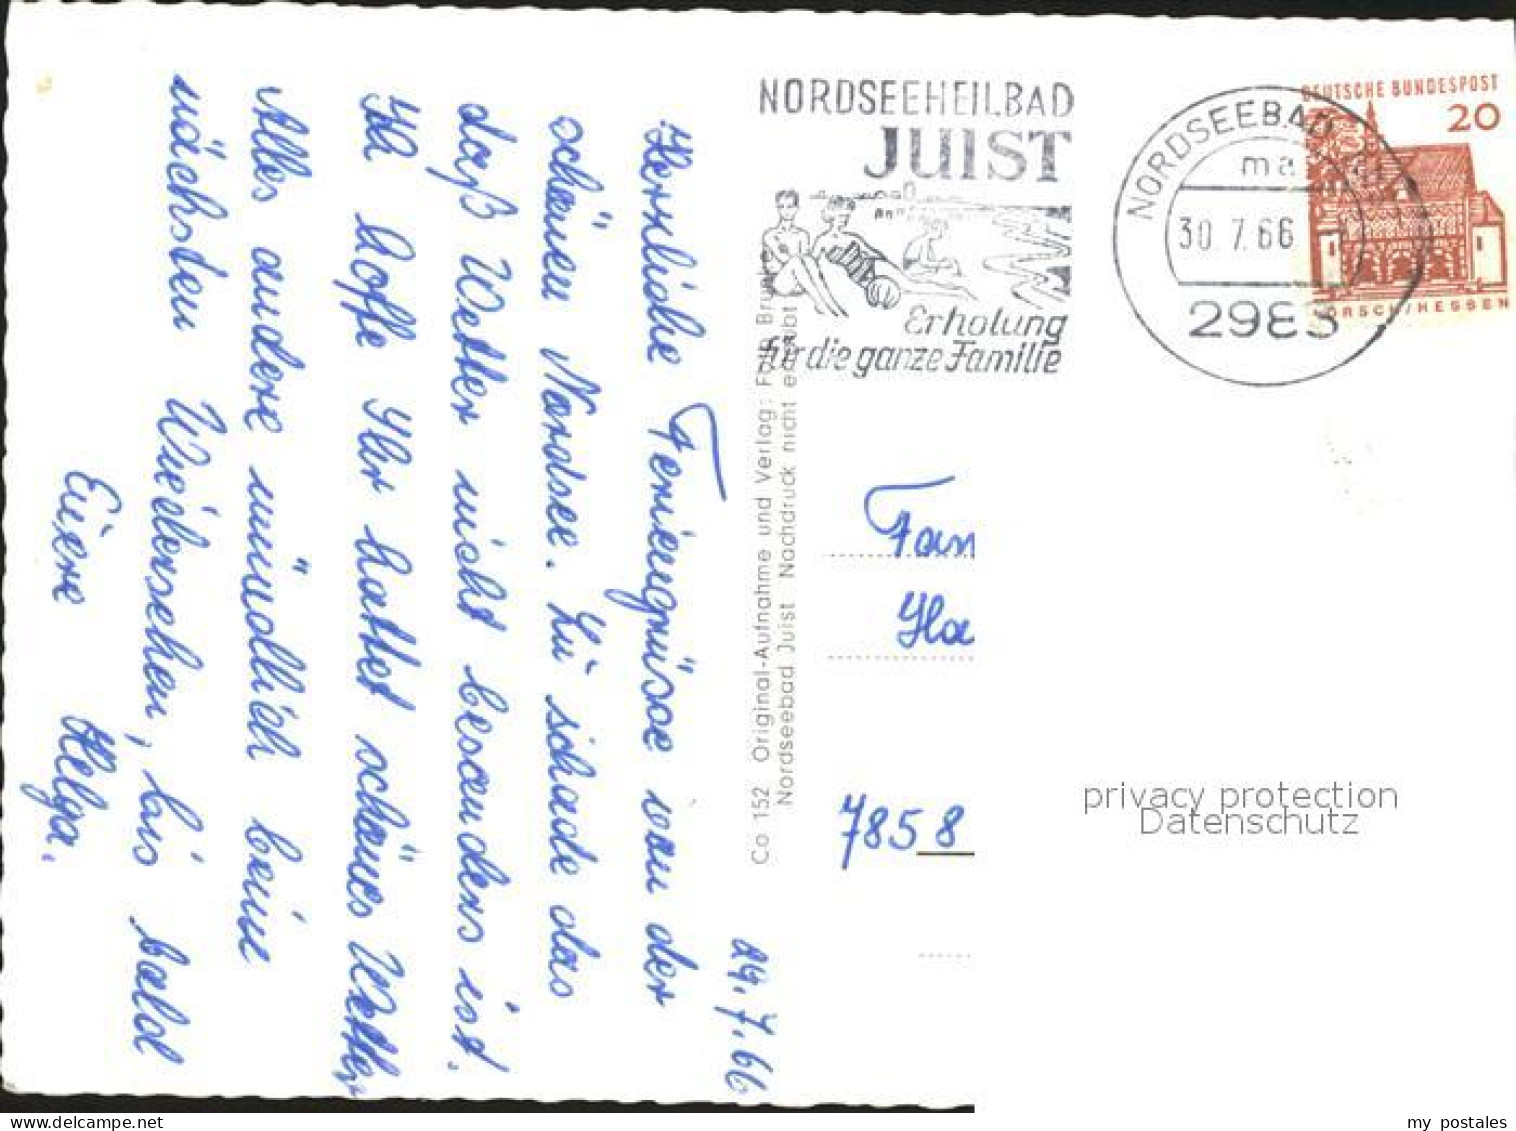 29.7.66
Herzliche Feriengrüsse von der
schönen Nordsee. Zu schade das
daß Wetter nicht besonders ist.
Ich hoffe Ihr hattet schönes Wetter
Alles andere mündlich beim
nächsten Wiedersehen, bis bald
Eure Helga.
Co 152 Original-Aufnahme und Verlag: Foto Brunke
Nordseebad Juist Nachdruck nicht erlaubt
NORDSEEHEILBAD
JUIST
Erholung
für die ganze Familie
NORDSEEBAD
30.7.66
2983
DEUTSCHE BUNDESPOST
20
LORSCH/HESSEN
Fam
Ha
7858
privacy protection
Datenschutz
my postales